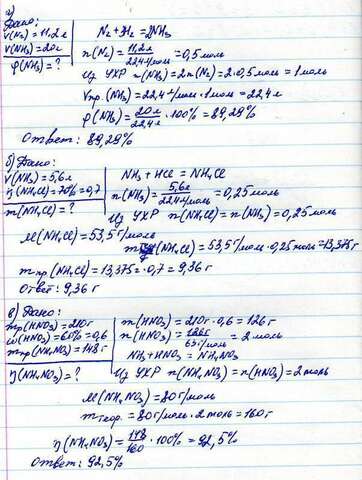 а)
Дано:
V(N₂) = 11,2 л
V(NH₃) = 20 л
φ(NH₃) = ?
N₂ + 3H₂ = 2NH₃
n(N₂) = 11,2 л / 22,4 л/моль = 0,5 моль
Из УХР n(NH₃) = 2n(N₂) = 2·0,5 моль = 1 моль
Vпр.(NH₃) = 22,4 л/моль · 1 моль = 22,4 л
φ(NH₃) = 20 л / 22,4 л · 100% = 89,29%
Ответ: 89,29%
б) Дано:
V(NH₃) = 5,6 л
η(NH₄Cl) = 70% = 0,7
m(NH₄Cl) = ?
NH₃ + HCl = NH₄Cl
n(NH₃) = 5,6 л / 22,4 л/моль = 0,25 моль
Из УХР n(NH₄Cl) = n(NH₃) = 0,25 моль
M(NH₄Cl) = 53,5 г/моль
m (NH₄Cl) = 53,5 г/моль · 0,25 моль = 13,375 г
mпр(NH₄Cl) = 13,375 · 0,7 = 9,36 г
Ответ: 9,36 г
в) Дано:
mр(HNO₃) = 210 г
ω(HNO₃) = 60% = 0,6
mпр(NH₄NO₃) = 148 г
η(NH₄NO₃) = ?
m(HNO₃) = 210 г · 0,6 = 126 г
n(HNO₃) = 126 г / 63 г/моль = 2 моль
NH₃ + HNO₃ = NH₄NO₃
Из УХР n(NH₄NO₃) = n(HNO₃) = 2 моль
M(NH₄NO₃) = 80 г/моль
mтеор. = 80 г/моль · 2 моль = 160 г
η(NH₄NO₃) = 148 / 160 · 100% = 92,5%
Ответ: 92,5%